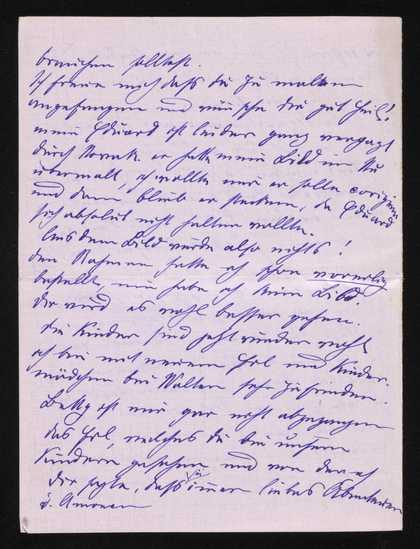 brauchen solltest.
Ich freue mich dass du zu malen
angefangen und wünsche dir gut Heil!
mein Eduard ist leider ganz verpazt
durch Novak. er hatte mein Bild im Nu
übermalt, ich wollte nur er solle corrigiren
und dann blieb er stecken, da Eduard
sich absolut nicht halten wollte.
Aus dem Bild wurde also nichts!
den Rahmen hatte ich schon voreilig
bestellt, nun habe ich kein Bild.
Dir wird es wohl besser gehen.
Die Kinder sind jetzt wieder recht
ich bin mit meinem Frl und Kinder-
mädchen bei Walter sehr zufrieden.
Betty ist mir gar nicht abgegangen
das Frl, welches du bei unsern
Kindern gesehen und von der ich
dir sagte, dass sie immer liebes